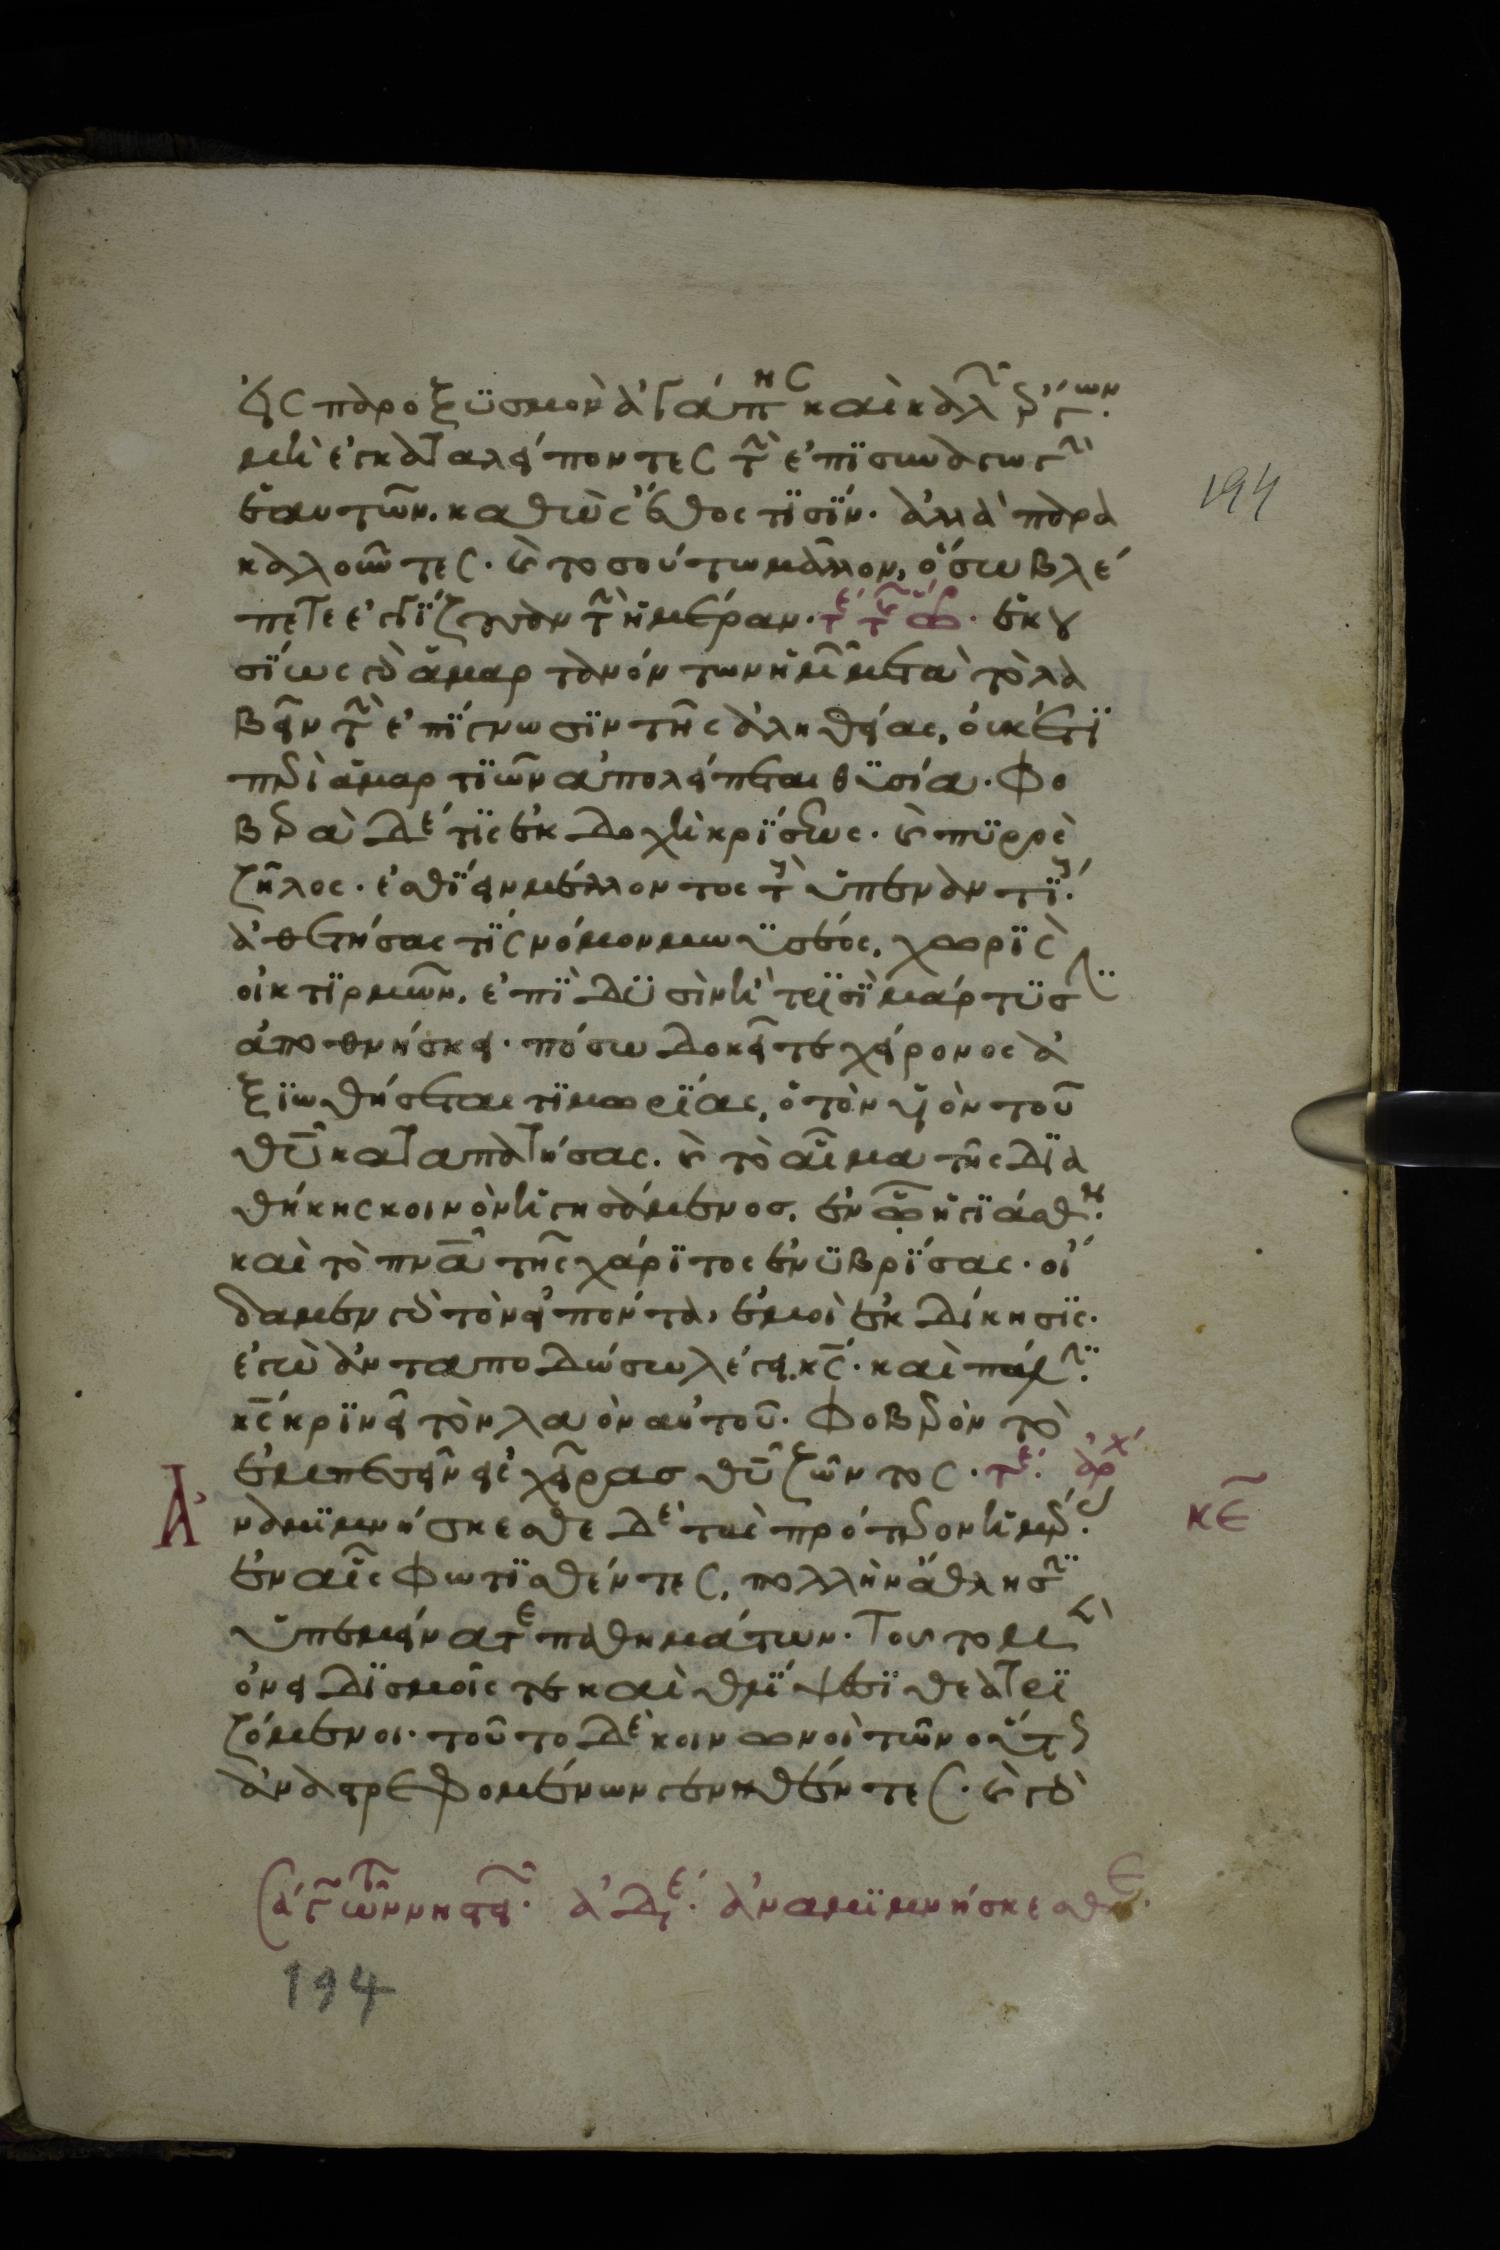 εἰς παροξϋσμὸν ἀγάπης καὶ καλῶν ἔργων.
μὴ ἐγκαταλείποντες τὴν ἐπϊσυναγωγὴν
ἑαυτῶν. καθὼς ἔθος τϊσϊν. ἀλλὰ παρα
καλοῦντες. καὶ τοσούτω μᾶλλον, ὅσω βλέ
πετε ἐγγΐζουσαν τὴν ἡμέραν. ἑκου
σΐως γὰρ ἁμαρτανόντων ἡμῶν μετὰ τὸ λα
βεῖν τὴν ἐπΐγνωσϊν τῆς ἀληθείας, οὐκέτϊ
περὶ ἁμαρτϊῶν ἀπολείπεται θϋσία. Φο
βερὰ δέ τϊς ἐκδοχὴ κρΐσεως. καὶ πϋρρὸς
ζῆλος. ἐσθΐειν μέλλοντος τοὺς ὑπεναντΐους.
ἀθετήσας τϊς νόμον μωϋσέος, χωρϊς
οἰκτϊρμῶν. ἐπϊ δϋσὶν ἢ τρϊσῒ μάρτϋσϊν
ἀποθνήσκει. πόσω δοκεῖτε χείρονος ἀ
ξϊωθήσεται τϊμωρΐας, ὁ τὸν υἱὸν τοῦ
θῦ καταπατήσας. καὶ τὸ αἷμα τῆς δϊα
θήκης κοινὸν ἡγησάμενος. ἐν ᾧ ἡγϊάσθη.
καὶ τὸ πνα τῆς χάρϊτος ἐνϋβρΐσας. οἴ
δαμεν γὰρ τὸν εἰπόντα, ἐμοὶ ἐκδίκησϊς.
ἐγὼ ἀνταποδώσω λέγει κς. καὶ πάλϊν.
κς κρϊνεῖ τὸν λαὸν αὐτοῦ. Φοβερὸν τὸ
ἐμπεσεῖν εἰς χεῖρας θῦ ζῶντος. τέ. ἀρχ
Ἀναμϊμνήσκεσθε δὲ τὰς πρότερον ἡμέρας.
ἐν αἷς φωτϊσθέντες, πολλὴν ἄθλησϊν
ὑπεμείνατε παθημάτων. Τοῦτο μὲν
ὀνειδϊσμοῖς τε καὶ θλΐψεσϊ θεατρϊ
ζόμενοι. τοῦτο δὲ κοινωνοὶ τῶν οὕτως
ἀναστρεφομένων γενηθέντες. καὶ γὰρ
ἀδε. ἀναμϊμνήσκεσθε.
κε
194
194